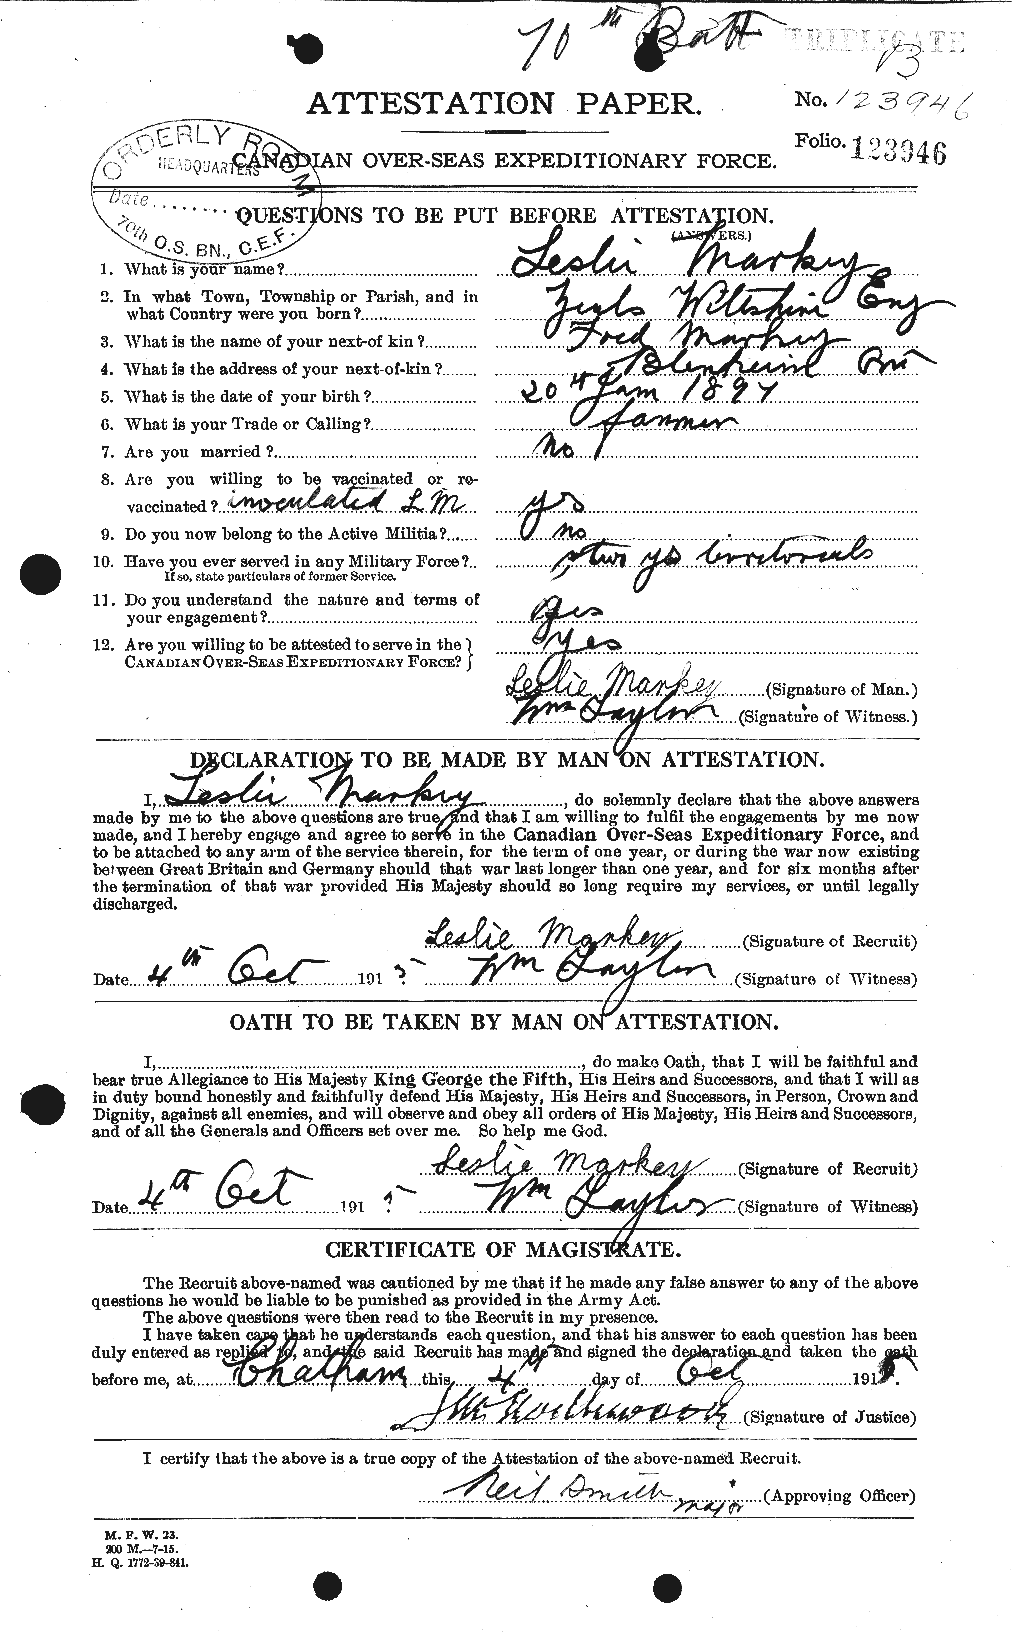 70th Batt TRIPLICATE
13
ATTESTATION PAPER.
No. 123946
Folio. 123946
ORDERLY ROOM
HEADQUARTERS
Date........
70th O.S. BN., C.E.F.
CANADIAN OVER-SEAS EXPEDITIONARY FORCE.
QUESTIONS TO BE PUT BEFORE ATTESTATION.
(ANSWERS.)
1. What is your name? Leslie Markey
2. In what Town, Township or Parish, and in
what Country were you born? Wiltshire Eng
3. What is the name of your next-of kin? Fred Markey
4. What is the address of your next-of-kin? Blenheim Ont
5. What is the date of your birth? 20th Jan 1897
6. What is your Trade or Calling? farmer
7. Are you married? no
8. Are you willing to be vaccinated or re-
vaccinated? inoculated L M yes
9. Do you now belong to the Active Militia? no
10. Have you ever served in any Military Force? two ys territorials
If so, state particulars of former Service.
11. Do you understand the nature and terms of
your engagement? yes
12. Are you willing to be attested to serve in the
CANADIAN OVER-SEAS EXPEDITIONARY FORCE? } yes
Leslie Markey (Signature of Man.)
Wm Taylor (Signature of Witness.)
DECLARATION TO BE MADE BY MAN ON ATTESTATION.
I, Leslie Markey, do solemnly declare that the above answers
made by me to the above questions are true, and that I am willing to fulfil the engagements by me now
made, and I hereby engage and agree to serve in the Canadian Over-Seas Expeditionary Force, and
to be attached to any arm of the service therein, for the term of one year, or during the war now existing
between Great Britain and Germany should that war last longer than one year, and for six months after
the termination of that war provided His Majesty should so long require my services, or until legally
discharged.
Leslie Markey (Signature of Recruit)
Date 4th Oct 1915 Wm Taylor (Signature of Witness)
OATH TO BE TAKEN BY MAN ON ATTESTATION.
I,........, do make Oath, that I will be faithful and
bear true Allegiance to His Majesty King George the Fifth, His Heirs and Successors, and that I will as
in duty bound honestly and faithfully defend His Majesty, His Heirs and Successors, in Person, Crown and
Dignity, against all enemies, and will observe and obey all orders of His Majesty, His Heirs and Successors,
and of all the Generals and Officers set over me. So help me God.
Leslie Markey (Signature of Recruit)
Date 4th Oct 1915 Wm Taylor (Signature of Witness)
CERTIFICATE OF MAGISTRATE.
The Recruit above-named was cautioned by me that if he made any false answer to any of the above
questions he would be liable to be punished as provided in the Army Act.
The above questions were then read to the Recruit in my presence.
I have taken care that he understands each question, and that his answer to each question has been
duly entered as replied to, and the said Recruit has made and signed the declaration and taken the oath
before me, at Chatham this 4th day of Oct 1915.
(Signature of Justice)
I certify that the above is a true copy of the Attestation of the above-named Recruit.
Neil Smith Major (Approving Officer)
M. F. W. 23.
200 M.—7-15.
H. Q. 1772-39-841.